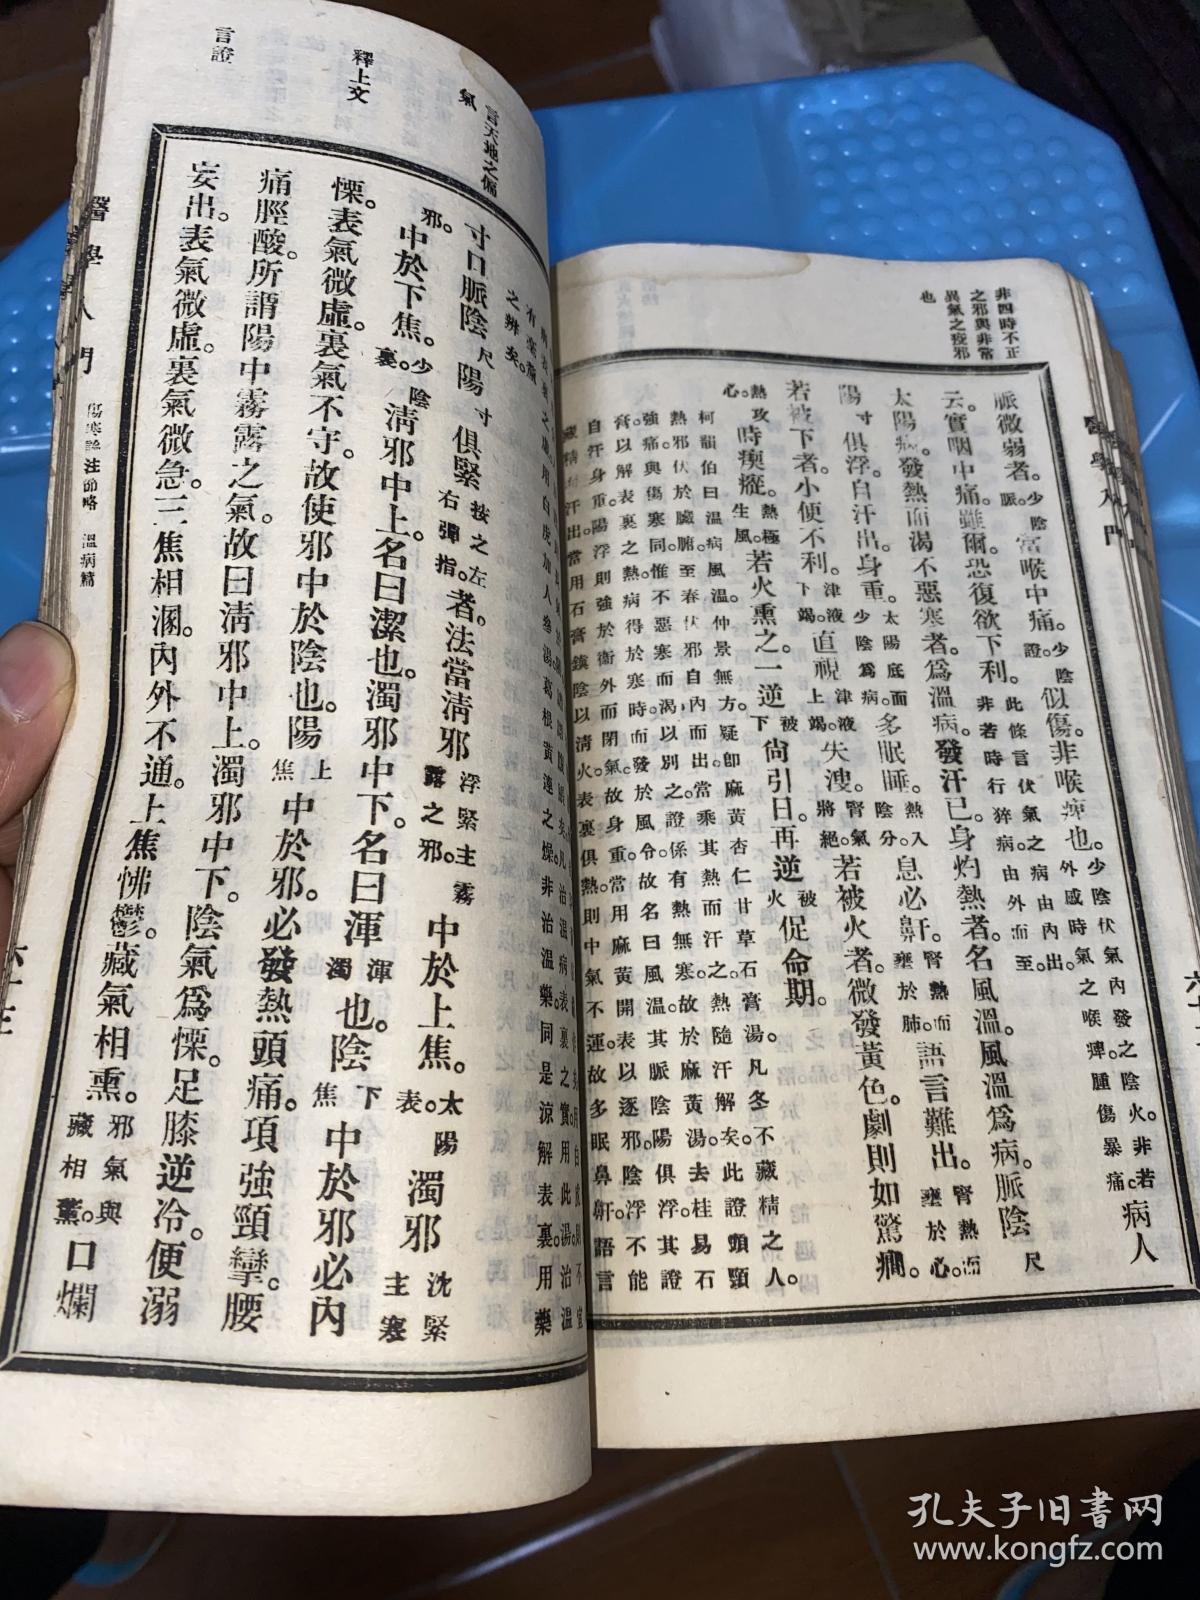 非四時不正
之邪與非常
異氣之疫邪
也
脈微弱者。少陰脈。當喉中痛。少陰證。似傷。非喉痺也。少陰伏氣內發之陰火。非若外感時氣之喉痺。腫傷暴痛。病人
云。實咽中痛。雖爾。恐復欲下利。此條言伏氣之病由內出。非若時行猝病。由外而至。
太陽病。發熱而渴不惡寒者。爲溫病。發汗已。身灼熱者。名風溫。風溫爲病。脈陰尺
陽寸俱浮。自汗出。身重。太陽底面少陰爲病。多眠睡。熱入陰分。息必鼾。腎熱而壅於肺。語言難出。腎熱而壅於心。
若被下者。小便不利。津液下竭。直視津液上竭。失溲。腎氣將絕。若被火者。微發黃色。劇則如驚癇。
熱攻心。時瘈瘲。熱極生風。若火熏之。一逆被下尙引日。再逆被火促命期。
柯韻伯曰溫病風溫仲景無方。疑卽麻黃杏仁甘草石膏湯。凡冬不藏精之人。
熱邪伏於臟腑。至春伏邪自內而出。當乘其熱而汗之。熱隨汗解矣。此證頭頸
強痛。與傷寒同。惟不惡寒而渴以別之。證係有熱無寒。故於麻黃湯去桂易石
膏。以解表裏之熱。病得於寒時。而發於風令。故名曰風溫。其脈陰陽俱浮。其證
自汗身重。陽浮則強於衛外而閉氣。故身重。當用麻黃開表以逐邪。陰浮不能
藏精而汗出。當用石膏鎮陰以清火。表裏俱熱。則中氣不運。故多眠鼻鼾。語言
言天地之偏
氣
釋上文
言證
之辨矣。
寸口脈陰尺陽寸俱緊按之左右彈指。者。法當清邪浮緊主霧露之邪。中於上焦。太陽表。濁邪沈緊主寒
邪。中於下焦。少陰裏。清邪中上。名曰潔也。濁邪中下。名曰渾渾濁也。陰下焦中於邪必內
慄。表氣微虛。裏氣不守。故使邪中於陰也。陽上焦中於邪。必發熱頭痛。項強頸攣。腰
痛脛酸。所謂陽中霧露之氣。故曰清邪中上。濁邪中下。陰氣爲慄。足膝逆冷。便溺
妄出。表氣微虛。裏氣微急。三焦相溷。內外不通。上焦怫鬱。藏氣相熏。邪氣與藏相薰。口爛
醫學入門
傷寒論注節略 溫病篇
醫學入門
孔夫子旧书网
www.kongfz.com